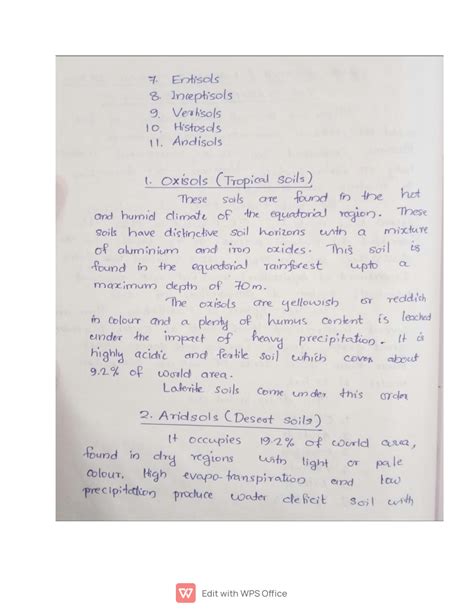 7. Entisols
8. Inceptisols
9. Vertisols
10. Histosols
11. Andisols
1. Oxisols (Tropical Soils)
These soils are found in the hot
and humid climate of the equatorial region. These
soils have distinctive soil horizons with a mixture
of aluminium and iron oxides. This soil is
found in the equatorial rainforest upto a
maximum depth of 70m.
The oxisols are yellowish or reddish
in colour and a plenty of humus content is leached
under the impact of heavy precipitation. It is
highly acidic and fertile soil which covers about
9.2% of world area.
Laterite soils come under this order
2. Aridsols (Desert soils)
It occupies 19.2% of world area,
found in dry regions with light or pale
colour. High evapo-transpiration and low
precipitation produce water deficit soil with
Edit with WPS Office